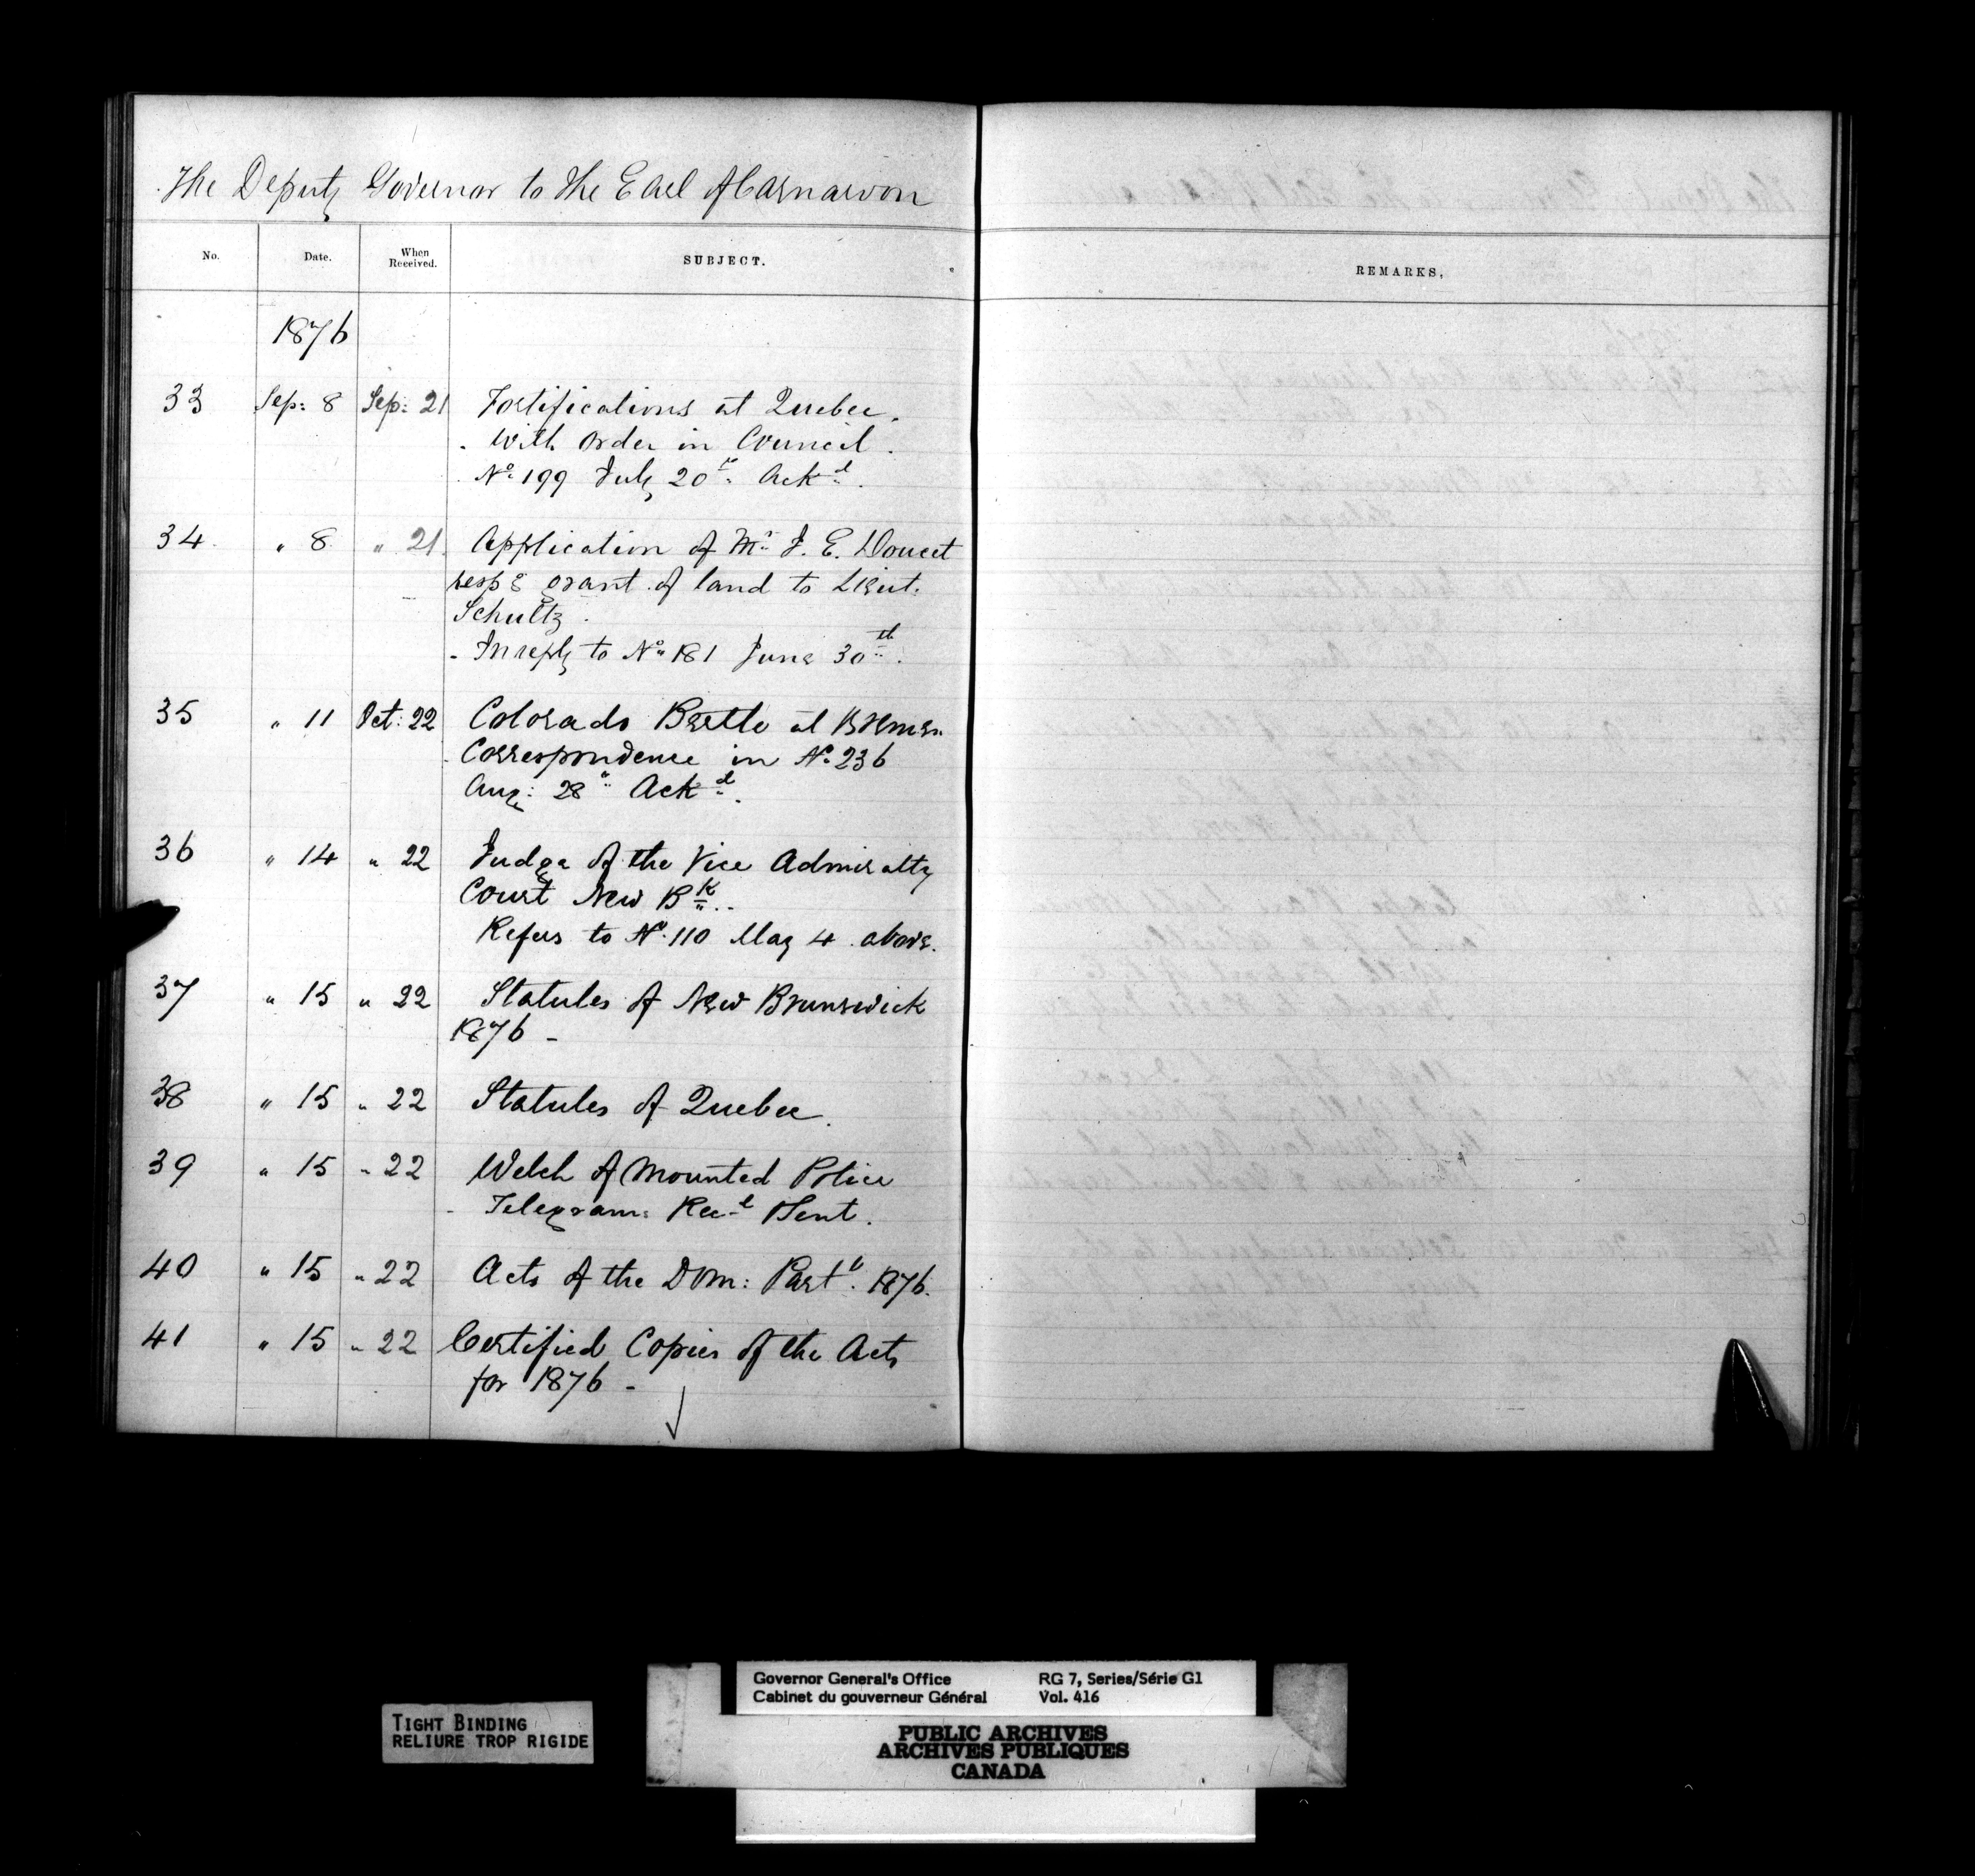 The Deputy Governor to the Earl of Carnarvon
No. Date. When Received. SUBJECT. REMARKS.
1876
33 Sep: 8 Sep: 21 Fortifications at Quebec.
- With Order in Council.
No 199 July 20th Ackd.
34 " 8 " 21 Application of Mr J. E. Doucet
respg grant of land to Lieut.
Schultz.
- In reply to No 181 June 30th.
35 " 11 Oct: 22 Colorado Beetle at Bremen.
Correspondence in No 236
Aug: 28" Ackd.
36 " 14 " 22 Judge of the Vice Admiralty
Court New Bk..
Refers to No. 110 May 4 above.
37 " 15 " 22 Statutes of New Brunswick
1876 -
38 " 15 " 22 Statutes of Quebec.
39 " 15 " 22 Welch of Mounted Police
- Telegrams Recd Sent.
40 " 15 " 22 Acts of the Dom: Part. 1876.
41 " 15 " 22 Certified Copies of the Acts
for 1876 -
TIGHT BINDING
RELIURE TROP RIGIDE
Governor General's Office RG 7, Series/Série G1
Cabinet du gouverneur Général Vol. 416
PUBLIC ARCHIVES
ARCHIVES PUBLIQUES
CANADA